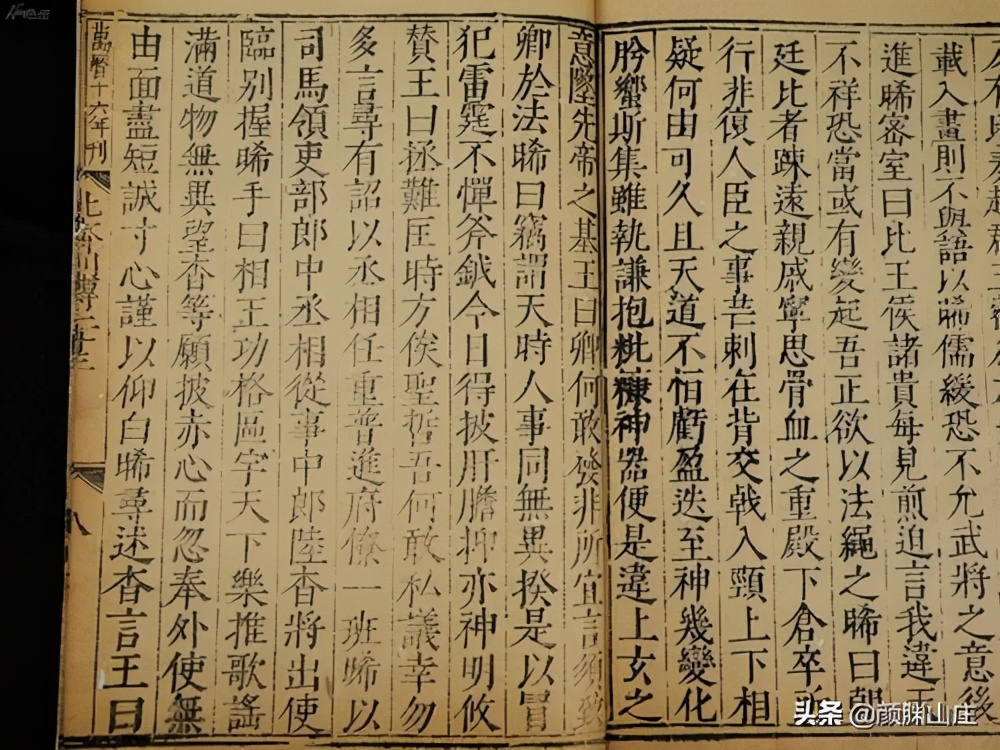 載入晝則不與語以晞儒緩恐不允武將之意後
進晞密室曰比王侯諸貴每見煎迫言我違天
不祥恐當或有變起吾正欲以法繩之晞曰朝
廷比者疎遠親戚寧思骨血之重殿下倉卒所
行非復人臣之事芒刺在背交戟入頸上下相
疑何由可久且天道不恒虧盈迭至神幾變化
肸蠁斯集雖執謙抱粃糠神器便是違上玄之
意墜先帝之基王曰卿何敢發非所宜言須致
卿於法晞曰竊謂天時人事同無異揆是以冒
犯雷霆不憚斧鉞今日得披肝膽抑亦神明攸
贊王曰拯難匡時方俟聖哲吾何敢私議幸勿
多言尋有詔以丞相任重普進府僚一班晞以
司馬領吏部郎中丞相從事中郎陸杳將出使
臨别握晞手曰相王功格區宇天下樂推歌謠
滿道物無異望杳等願披赤心而忽奉外使無
由面盡短誠寸心謹以仰白晞尋述杳言王曰
萬曆十六年刊
北齊列傳二十三
八
头条 @颜渊山庄